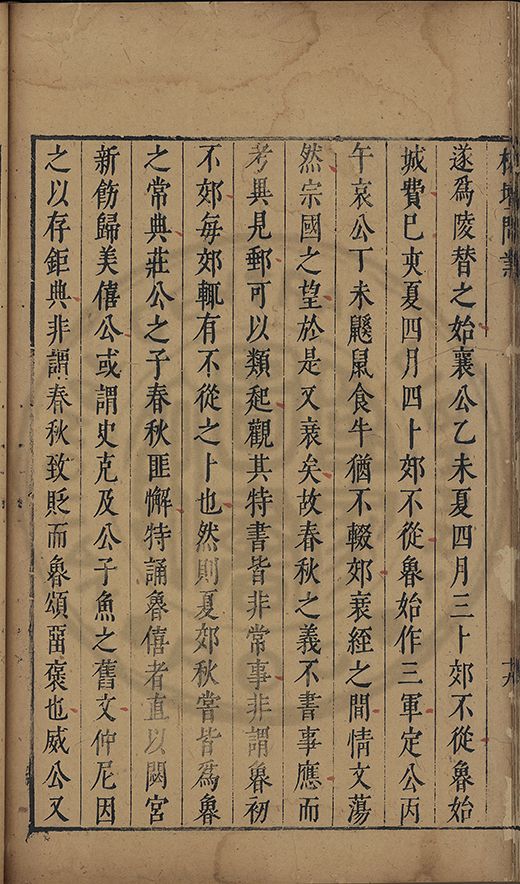 遂爲陵替之始襄公乙未夏四月三卜郊不從魯始
城費己亥夏四月四卜郊不從魯始作三軍定公丙
午哀公丁未鼷鼠食牛猶不輟郊衰絰之間情文蕩
然宗國之望於是又衰矣故春秋之義不書事應而
考異見郵可以類起觀其特書皆非常事非謂魯初
不郊每郊輒有不從之卜也然則夏郊秋嘗皆爲魯
之常典莊公之子春秋匪懈特誦魯僖者直以閟宮
新飭歸美僖公或謂史克及公子魚之舊文仲尼因
之以存鉅典非謂春秋致貶而魯頌畱褒也威公又